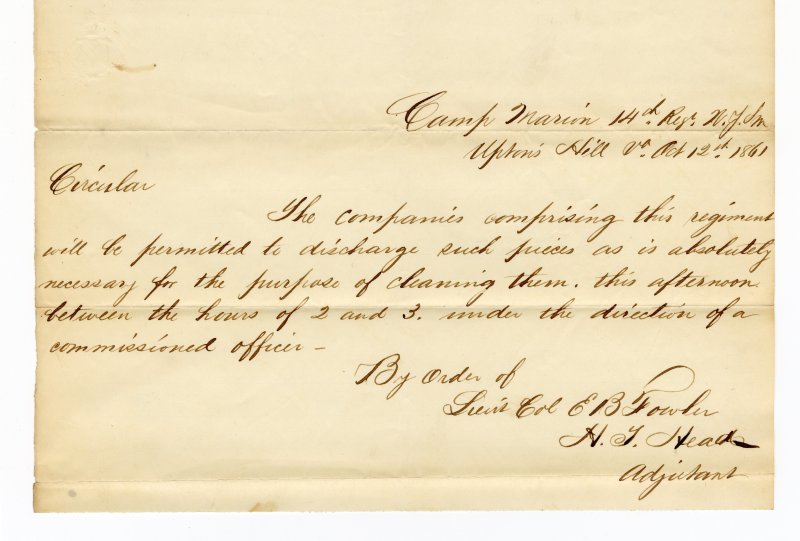 Camp Marion 14th Regt. N.Y.S.M
Upton's Hill Va. Oct 12th 1861
Circular
The companies comprising this regiment
will be permitted to discharge such pieces as is absolutely
necessary for the purpose of cleaning them. this afternoon
between the hours of 2 and 3. under the direction of a
commissioned officer -
By Order of
Lieut Col E B Fowler
H. T. Head
Adjutant